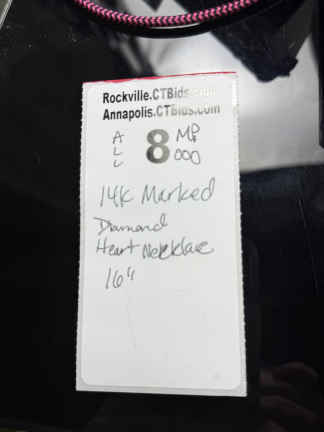 Rockville.CTBids.com
Annapolis.CTBids.com
A L L 8 MP 000
14k Marked
Diamond
Heart Necklace
16"